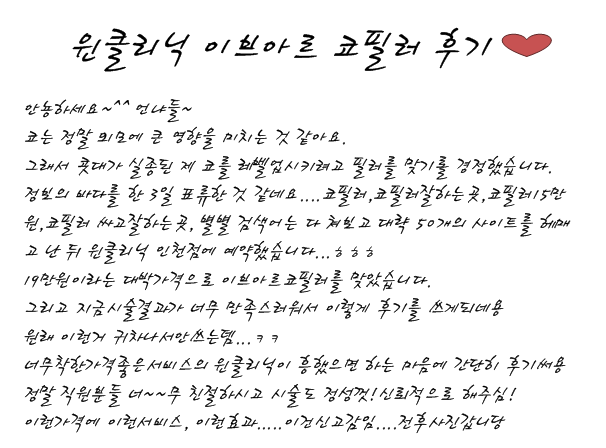 윈클리닉 이브아르 코필러 후기
안뇽하세요~^^ 언냐들~
코는 정말 외모에 큰 영향을 미치는 것 같아요.
그래서 콧대가 실종된 제 코를 레벨업시키려고 필러를 맞기를 결정했습니다.
정보의 바다를 한 3일 표류한 것 같네요....코필러,코필러잘하는곳,코필러15만
원,코필러 싸고잘하는곳, 별별 검색어는 다 쳐보고 대략 50개의 사이트를 헤매
고 난 뒤 윈클리닉 인천점에 예약했습니다...ㅎㅎㅎ
19만원이라는 대박가격으로 이브아르코필러를 맞았습니다.
그리고 지금시술결과가 너무 만족스러워서 이렇게 후기를 쓰게되네용
원래 이런거 귀차나서안쓰는뎀...ㅋㅋ
너무착한가격좋은서비스의 윈클리닉이 흥했으면 하는 마음에 간단히 후기써용
정말 직원분들 너~~무 친절하시고 시술도 정성껏!신뢰적으로 해주심!
이런가격에 이런서비스, 이런효과.....이건신고감임....전후사진갑니당